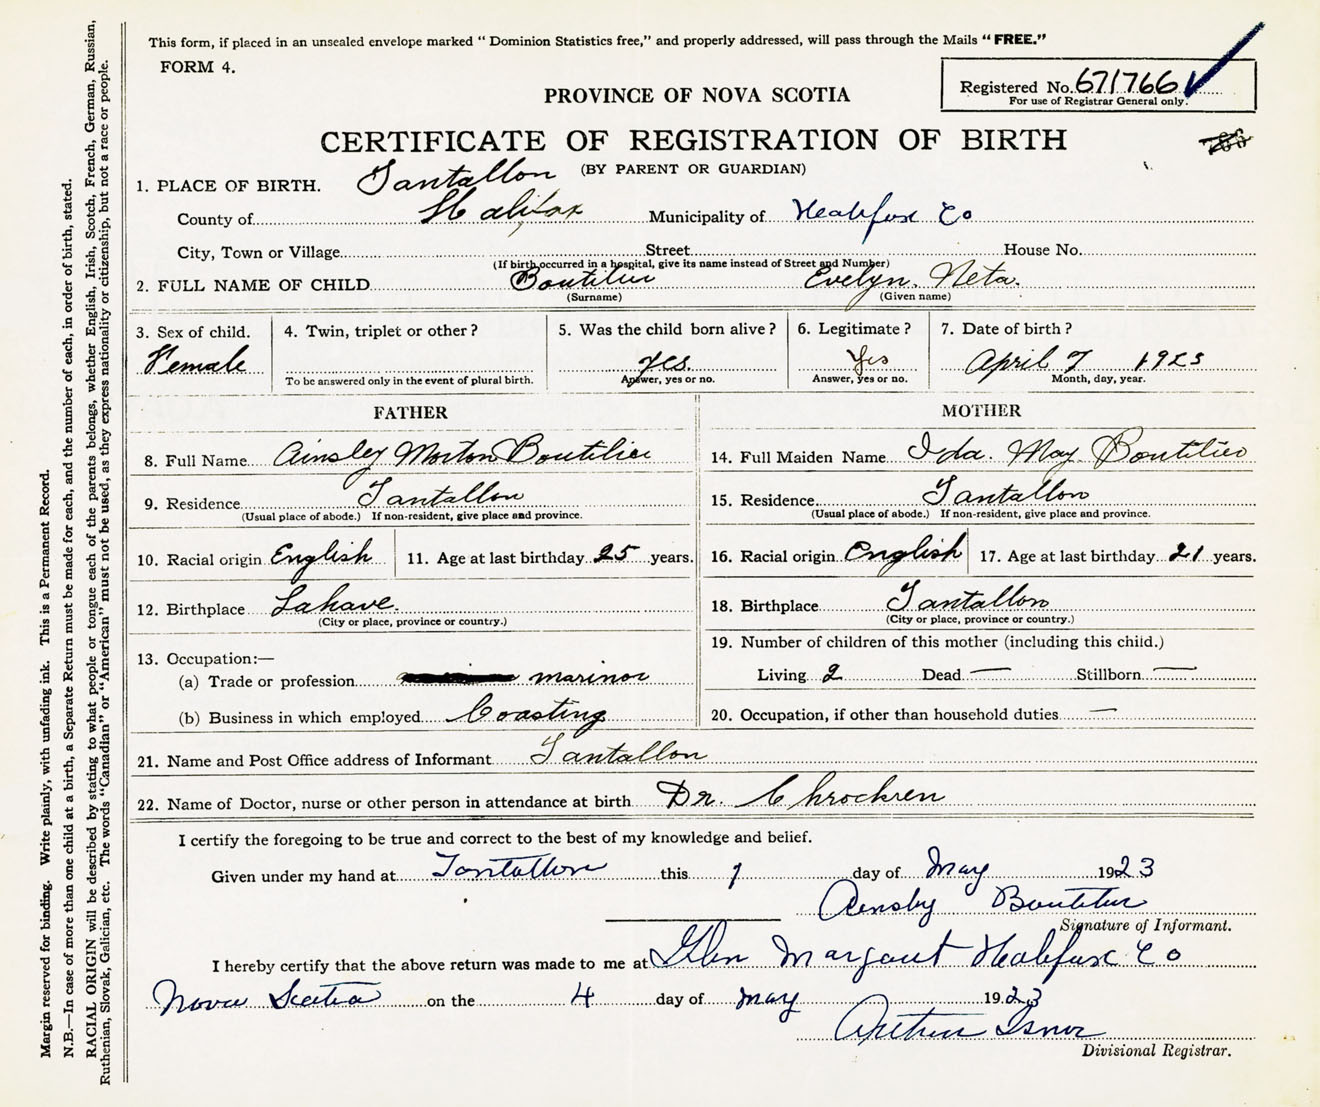 This form, if placed in an unsealed envelope marked “ Dominion Statistics free,” and properly addressed, will pass through the Mails “ FREE.”
FORM 4.
Registered No. 671766
For use of Registrar General only.
PROVINCE OF NOVA SCOTIA
CERTIFICATE OF REGISTRATION OF BIRTH
(BY PARENT OR GUARDIAN)
1. PLACE OF BIRTH. Tantallon
County of Halifax Municipality of Healifux Co
City, Town or Village Street House No.
(If birth occurred in a hospital, give its name instead of Street and Number)
2. FULL NAME OF CHILD Boutilier Evelyn. Neta.
(Surname) (Given name)
3. Sex of child. 4. Twin, triplet or other ? 5. Was the child born alive ? 6. Legitimate ? 7. Date of birth ?
Female yes. Yes April 7 1923
To be answered only in the event of plural birth. Answer, yes or no. Answer, yes or no. Month, day, year.
FATHER MOTHER
8. Full Name Ainsley Morton Boutilier 14. Full Maiden Name Ida. May. Boutilier
9. Residence Tantallon 15. Residence Tantallon
(Usual place of abode.) If non-resident, give place and province. (Usual place of abode.) If non-resident, give place and province.
10. Racial origin English 11. Age at last birthday 25 years. 16. Racial origin English 17. Age at last birthday 21 years.
12. Birthplace Lahave. 18. Birthplace Tantallon
(City or place, province or country.) (City or place, province or country.)
19. Number of children of this mother (including this child.)
13. Occupation:—
(a) Trade or profession marinor Living 2 Dead — Stillborn —
(b) Business in which employed Coasting 20. Occupation, if other than household duties —
21. Name and Post Office address of Informant Tantallon
22. Name of Doctor, nurse or other person in attendance at birth Dr.
I certify the foregoing to be true and correct to the best of my knowledge and belief.
Given under my hand at Tantallon this 1 day of May 1923
Boutilier
Signature of Informant.
I hereby certify that the above return was made to me at Glen Margaut Healifux Co
Nova Scotia on the 4 day of may 1923
Arthur Isnor
Divisional Registrar.
Margin reserved for binding. Write plainly, with unfading ink. This is a Permanent Record.
N.B.—In case of more than one child at a birth, a Separate Return must be made for each, and the number of each, in order of birth, stated.
RACIAL ORIGIN will be described by stating to what people or tongue each of the parents belongs, whether English, Irish, Scotch, French, German, Russian,
Ruthenian, Slovak, Galician, etc. The words “Canadian” or “American” must not be used, as they express nationality or citizenship, but not a race or people.